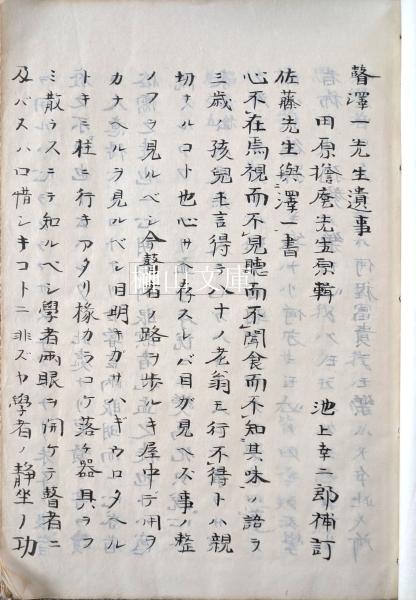 瞽澤一先生遺事
田原擔庵先生原輯 池上幸二郎補訂
佐藤先生與澤一書
心不在焉視而不見聽而不聞食而不知其味ハ語ヲ
三歳ノ孩兒モ言得テ八十ノ老翁モ行不得トハ親
切ナルコト也心サヘ存スレバ目が見ヘズ事ノ整
ノフヲ見ルベシ今瞽者ノ路ヲ歩ルキ屋中デ用ヲ
カナヘルヲ見ルベシ目明キガサハギウロタヘル
トキニ柱ニ行キアタリ椽カラコケ落ケ器具ヲフ
ミ散ラスニテ知ルベシ學者兩眼ヲ開ケテ瞽者ニ
及バズハロ惜シキコトニ非ズヤ學者ノ靜坐ノ功
榊山文庫